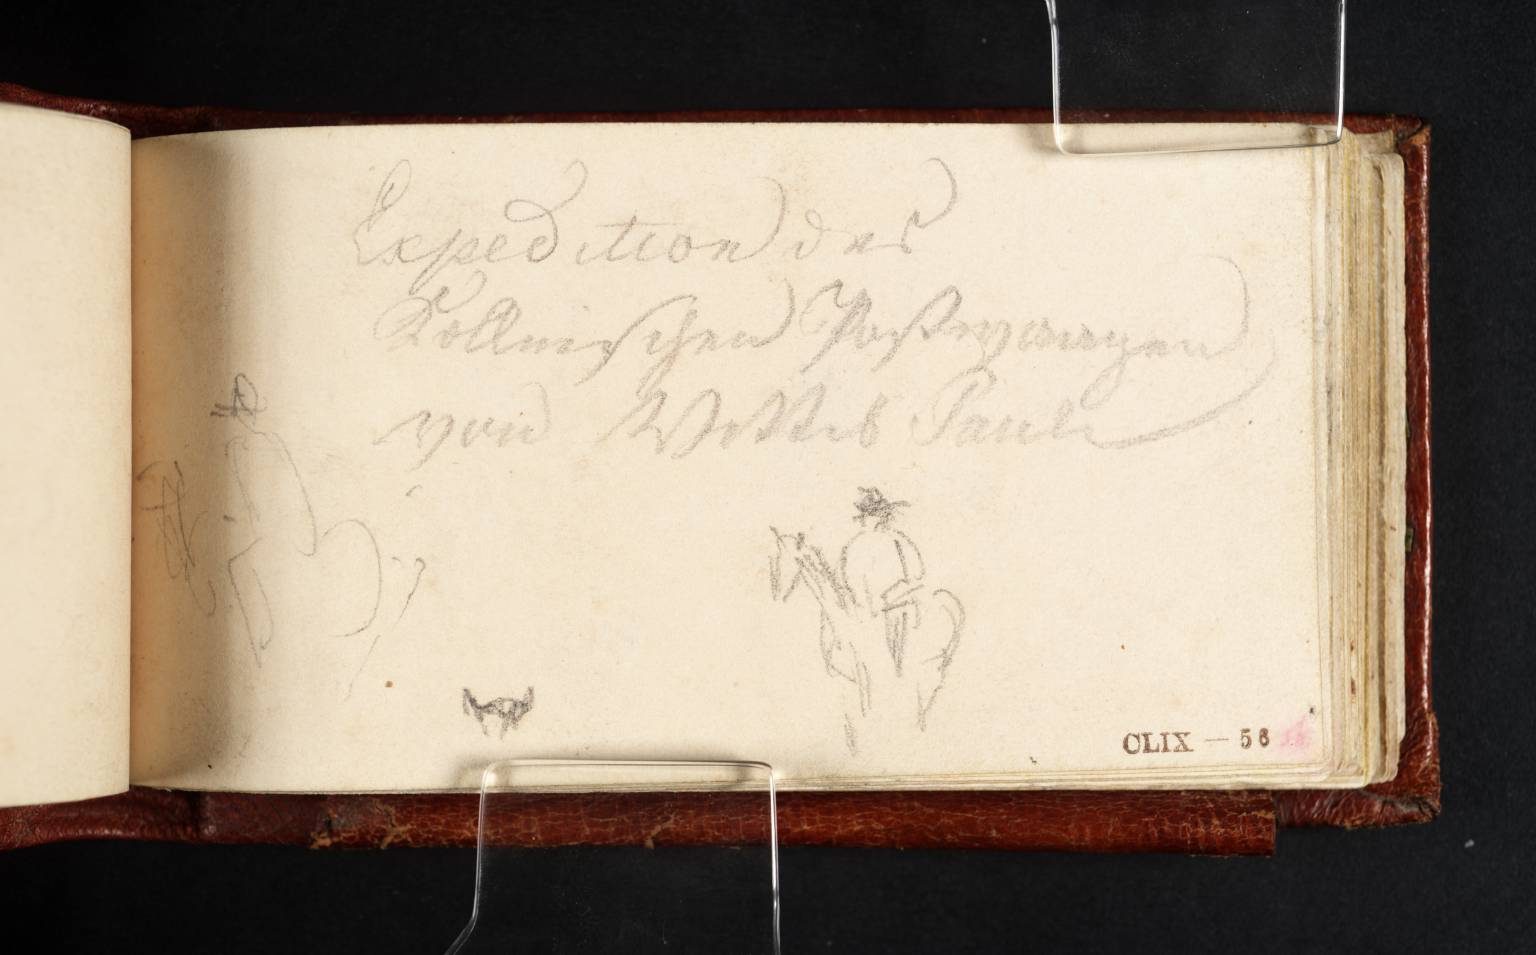 Expedition des
Köllnischen Postwaagen
von Wittib Pauli
CLIX — 56